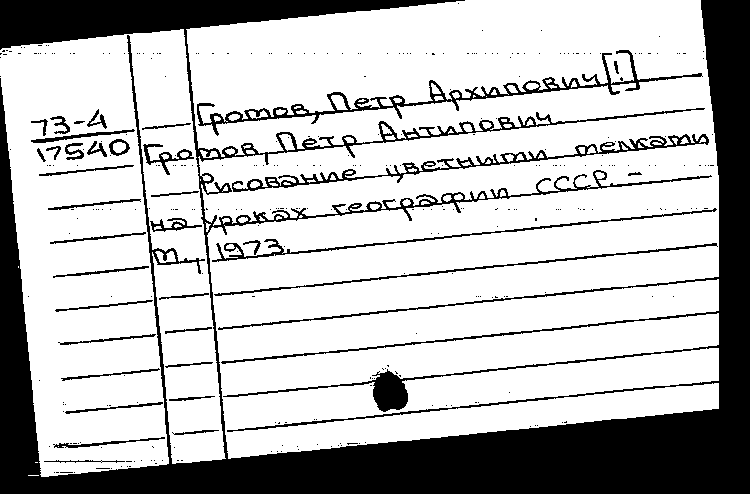 Громов, Петр Архипович [!]
73-4
17540 Громов, Петр Антипович.
Рисование цветными мелками
на уроках географии СССР. -
М., 1973.